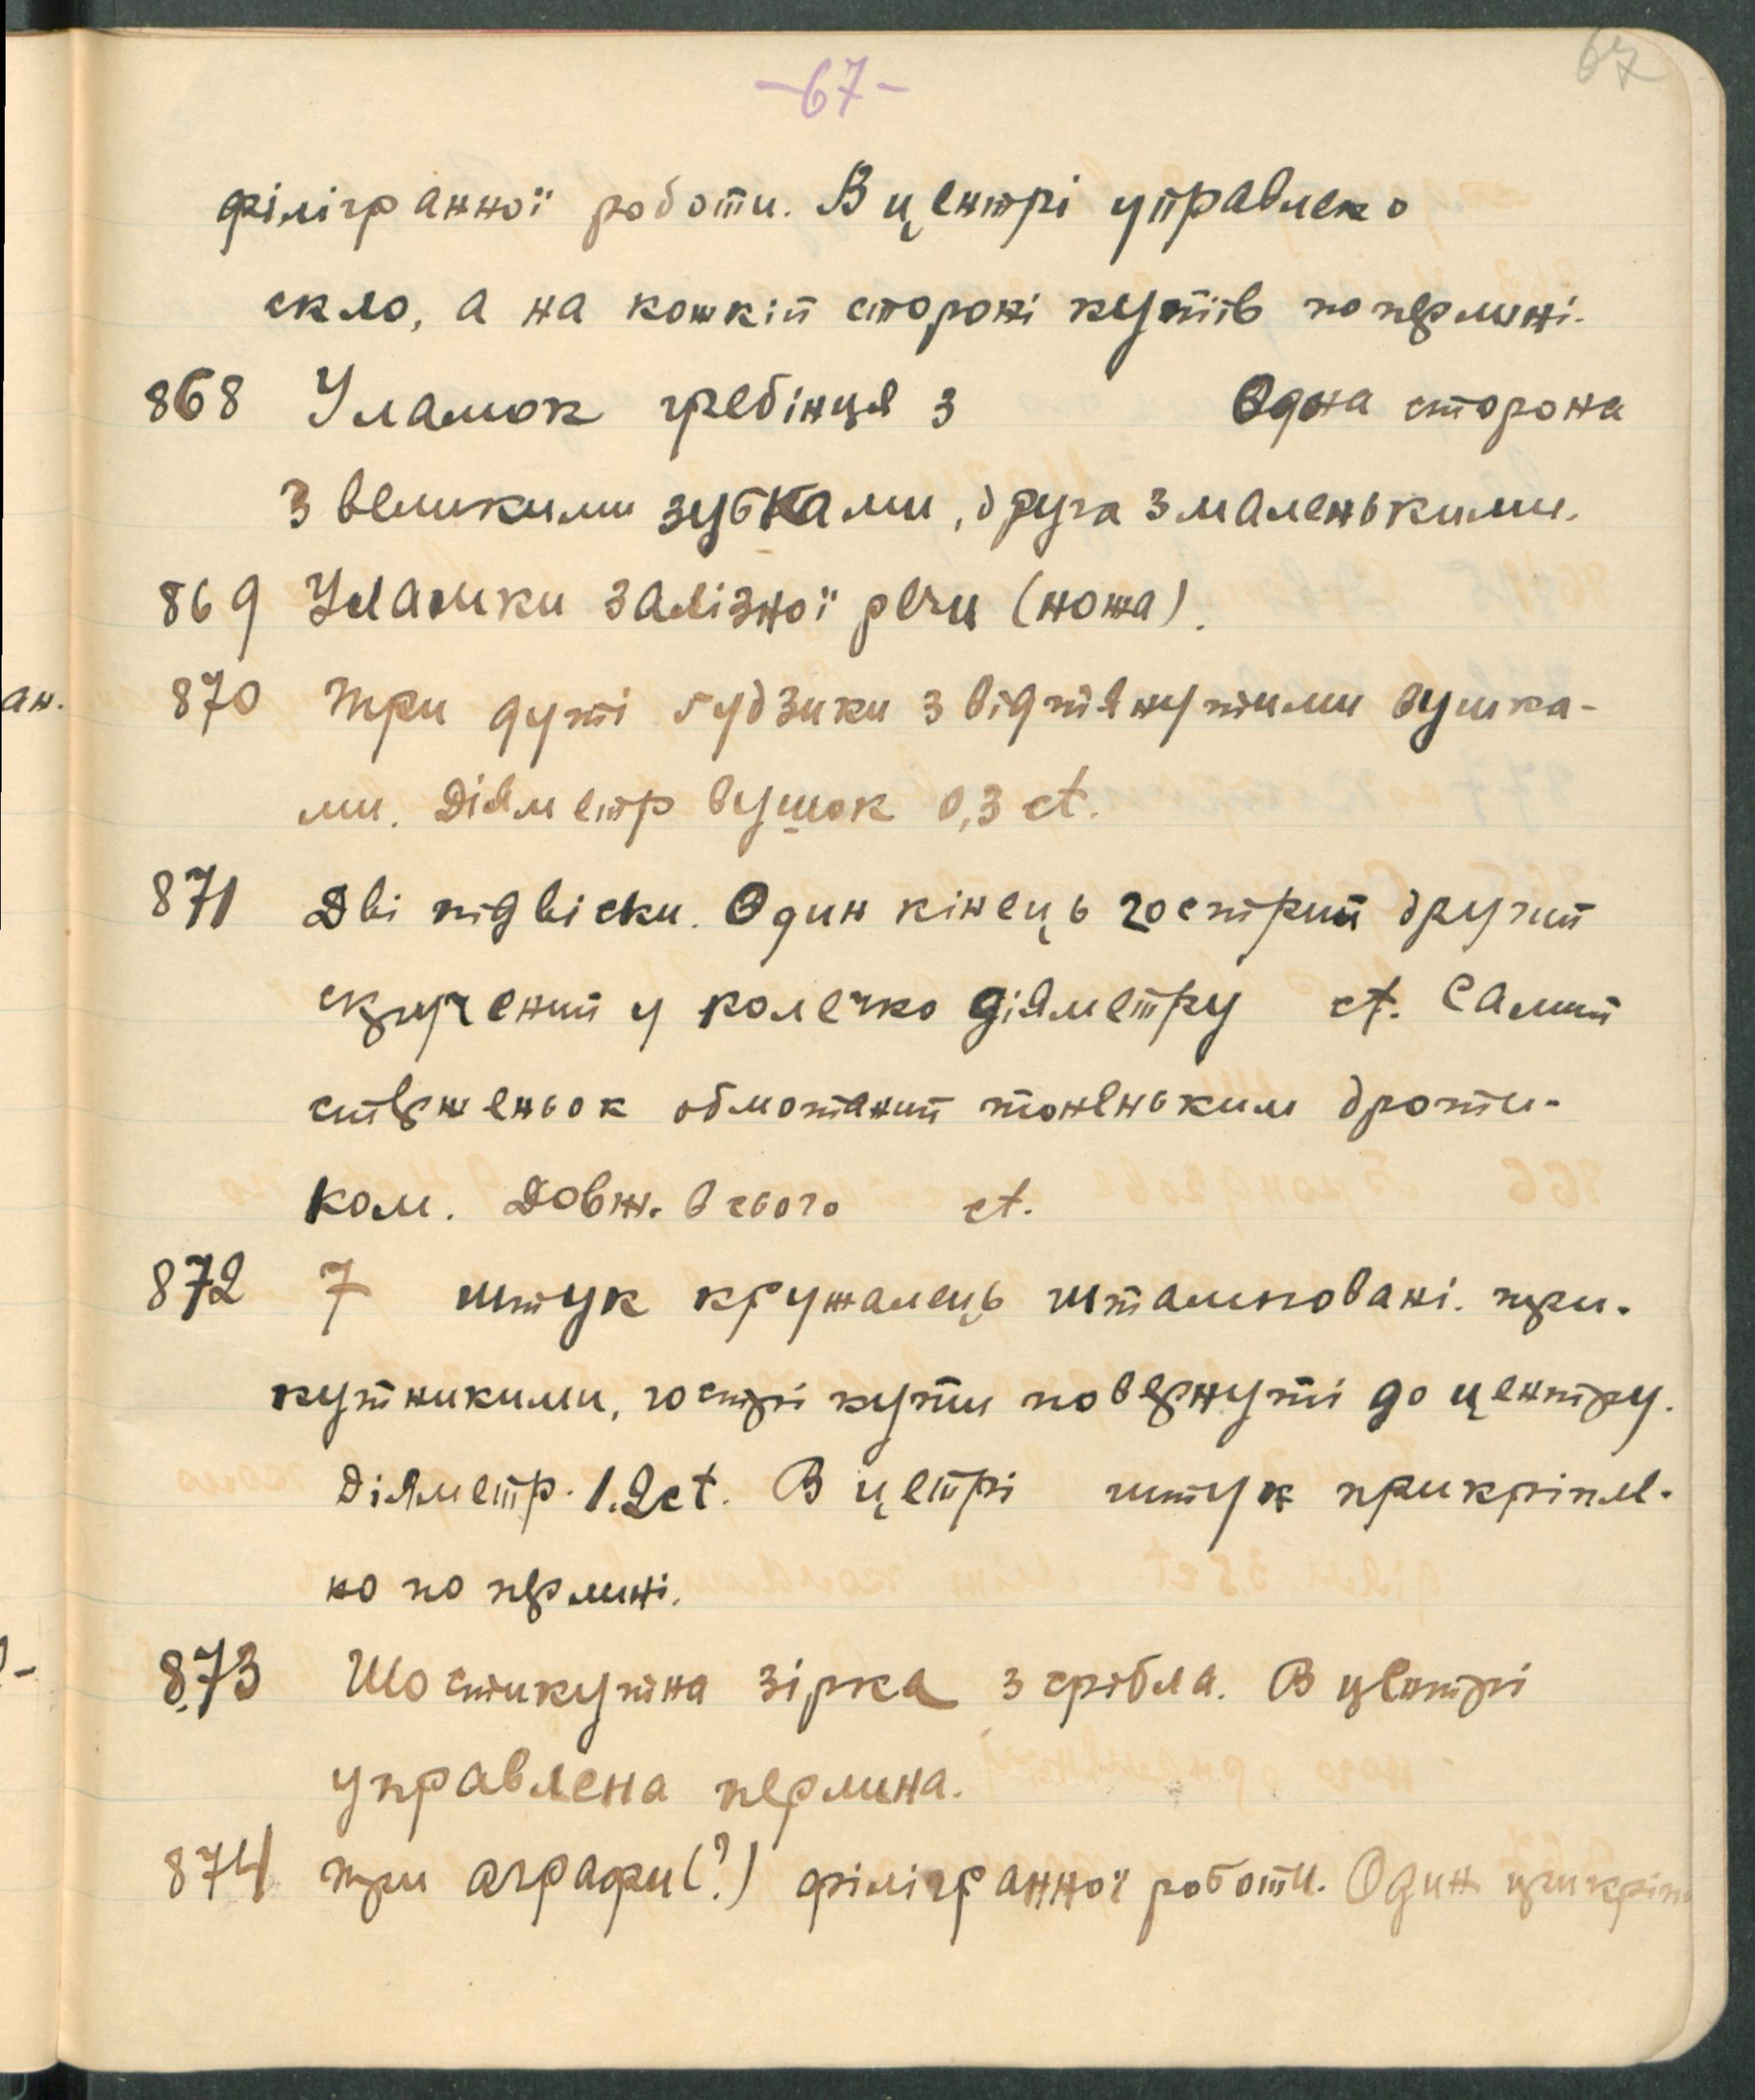 -67-
67
філігранної роботи. В центрі управлено
скло, а на кожній стороні кутів по перлині.
868 Уламок гребінця з Одна сторона
з великими зубками, друга з маленькими.
869 Уламки залізної речи (ножа).
ан.
870 Три дуті гудзики з відтягнутими вушка-
ми. Діяметр вушок 0,3 ct.
871 Дві підвіски. Один кінець гострий другий
скручений у колечко діяметру ct. Самий
стерженьок обмотаний тоненьким дроти-
ком. Довж. всього ct.
872 7 штук кружалець штамповані. три-
кутникими, гострі кути повернуті до центру.
Діяметр. 1.2 ct. В цетрі штук прикріпле-
но по перлині.
873 Шостикутна зірка з срібла. В центрі
управлена перлина.
874 Три аграфи(?) філігранної роботи. Один прикріп